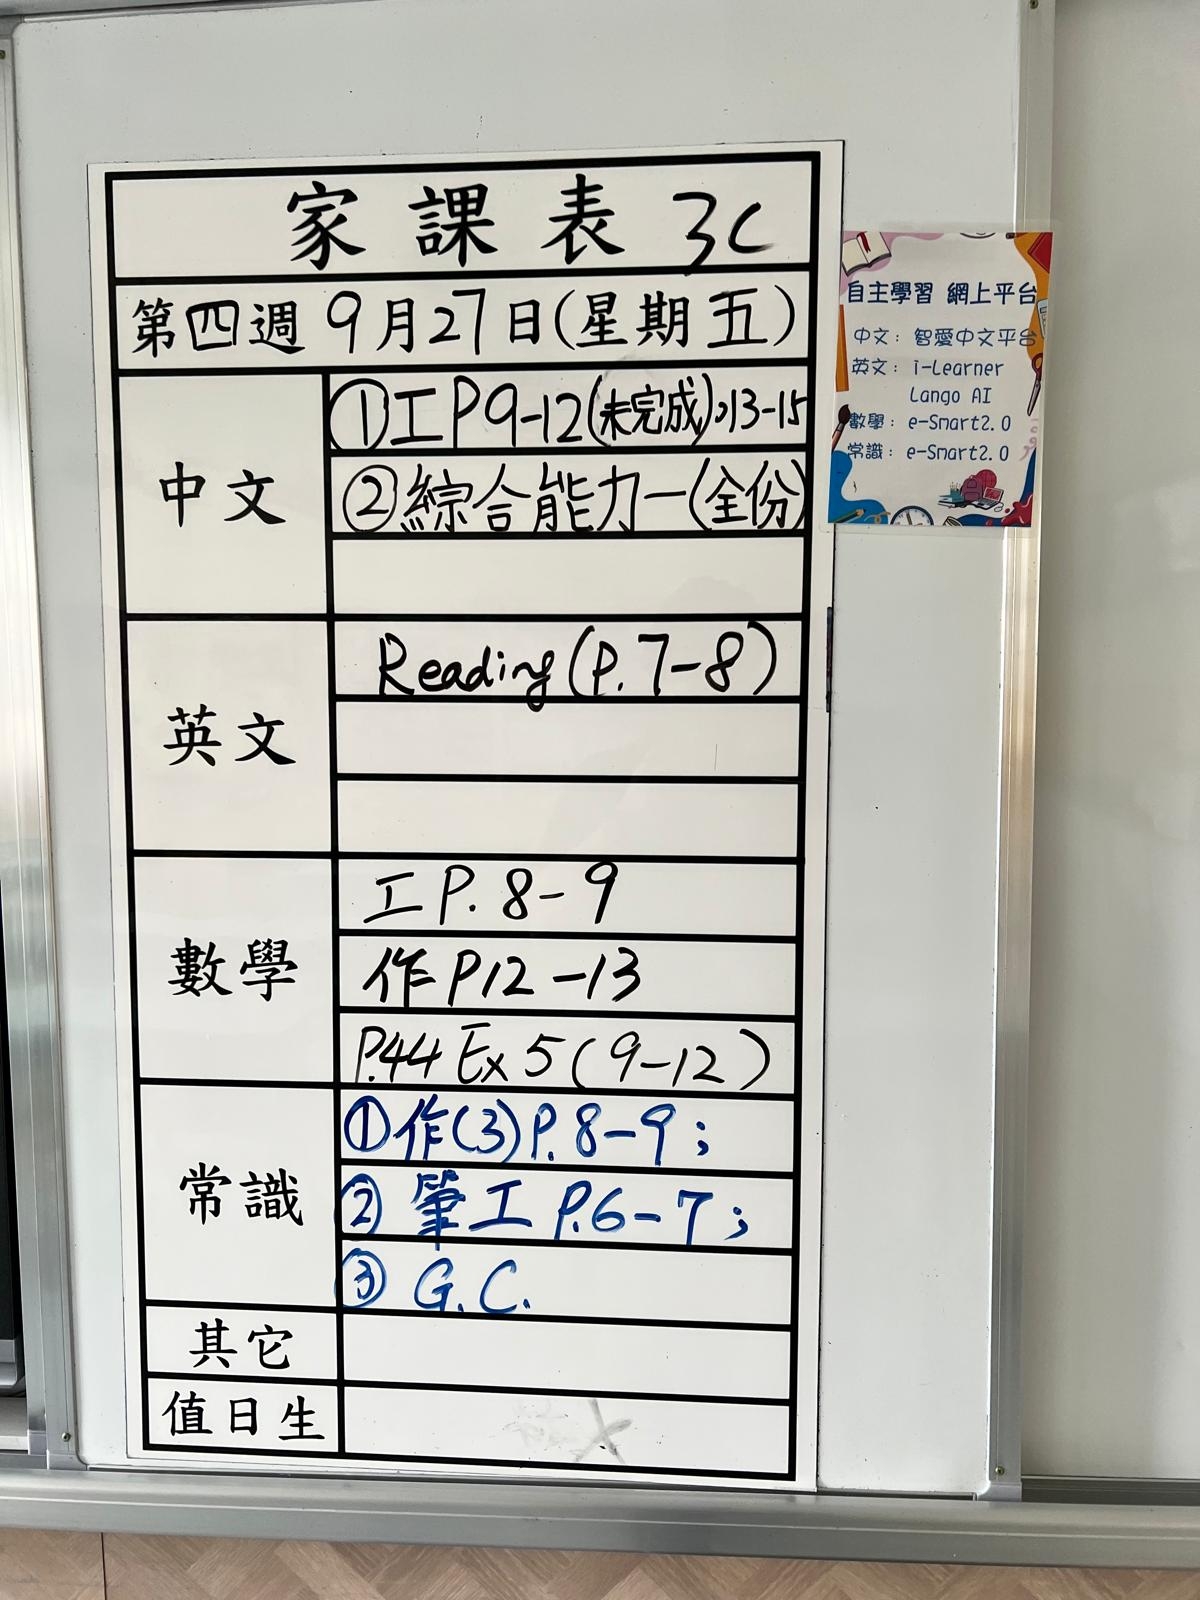 家課表 3C
第四週 9月27日(星期五)
中文
①工P9-12(未完成),13-15
②綜合能力一(全份)
英文
Reading(P.7-8)
數學
工P.8-9
作P12-13
P.44 Ex 5(9-12)
常識
①作(3)P.8-9;
②筆工P.6-7;
③G.C.
其它
值日生
自主學習 網上平台
中文：智愛中文平台
英文：i-Learner
Lango AI
數學：e-Smart2.0
常識：e-Smart2.0